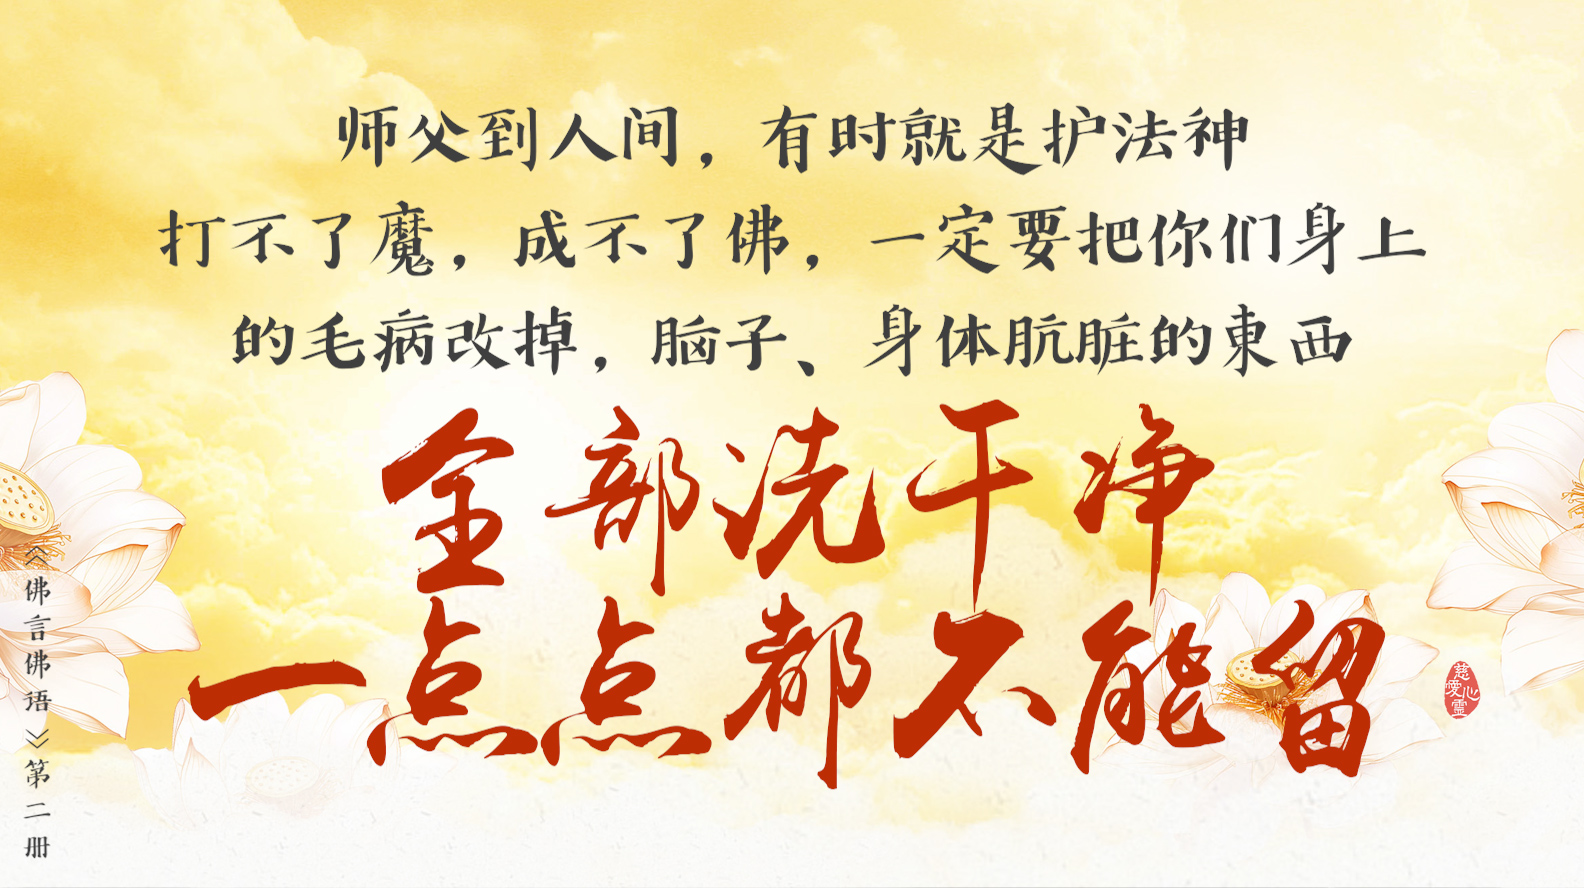 师父到人间，有时就是护法神
打不了魔，成不了佛，一定要把你们身上
的毛病改掉，脑子、身体肮脏的東西
全部洗干净
一点点都不能留
《佛言佛语》第二册
慈愛心靈